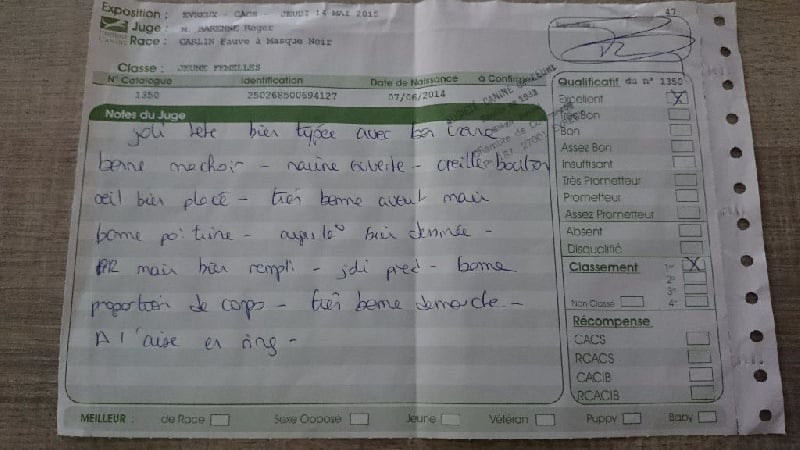 Exposition : EVREUX - CACS - JEUDI 14 MAI 2015
47
Juge : M. BARENNE Roger
Race : CARLIN Fauve à Masque Noir
Classe : JEUNE FEMELLES
N° Catalogue Identification Date de Naissance à Confirmer
1350 250268500694127 07/06/2014
Notes du Juge
joli tete bien typée avec bon crane
bonne machoir - narine ouverte - oreille bouton
œil bien placé - très bonne avant main
bonne poitrine - bien dessinée -
AR main bien rempli - joli pied - bonne
proportion de corps - très bonne démarche -
A l'aise en ring -
Qualificatif du n° 1350
Excellent X
Très Bon
Bon
Assez Bon
Insuffisant
Très Prometteur
Prometteur
Assez Prometteur
Absent
Disqualifié
Classement 1er X
2e
3e
Non Classé 4e
Récompense
CACS
RCACS
CACIB
RCACIB
MEILLEUR : de Race Sexe Opposé Jeune Vétéran Puppy Baby